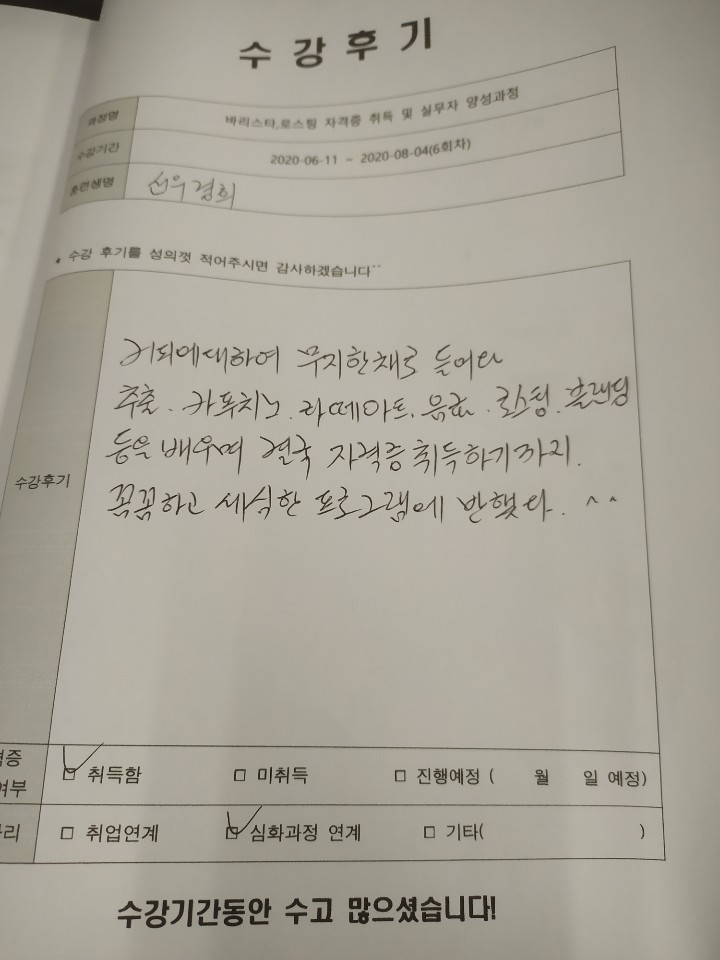 수 강 후 기
과정명 바리스타,로스팅 자격증 취득 및 실무자 양성과정
수강기간 2020-06-11 ~ 2020-08-04(6회차)
훈련생명 선우경희
* 수강 후기를 성의껏 적어주시면 감사하겠습니다~~
커피에대하여 무지한채로 들어와
추출. 카푸치노. 라떼아트. 음료. 로스팅. 블랜딩
등을 배우며 결국 자격증 취득하기까지.
수강후기
꼼꼼하고 세심한 프로그램에 반했다. ^^
증
여부
☑ 취득함 □ 미취득 □ 진행예정 ( 월 일 예정)
리 □ 취업연계 ☑ 심화과정 연계 □ 기타( )
수강기간동안 수고 많으셨습니다!